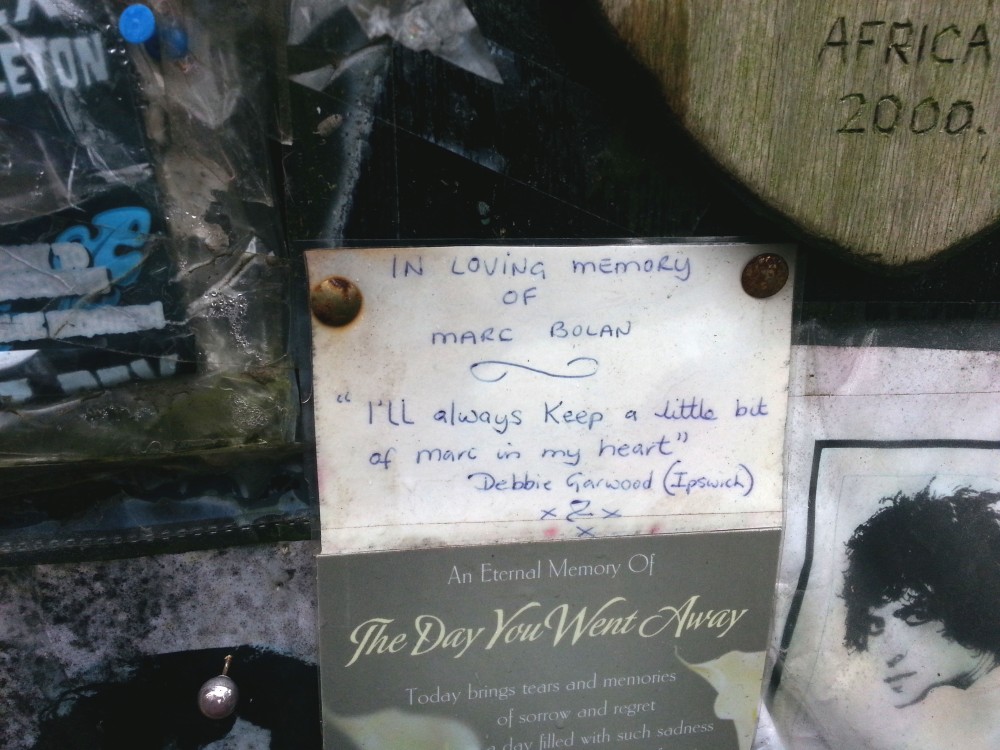 LETON
AFRICA
2000.
IN LOVING MEMORY
OF
MARC BOLAN
"I'LL always Keep a little bit
of marc in my heart"
Debbie Garwood (Ipswich)
x 2 x
x
An Eternal Memory Of
The Day You Went Away
Today brings tears and memories
of sorrow and regret
a day filled with such sadness